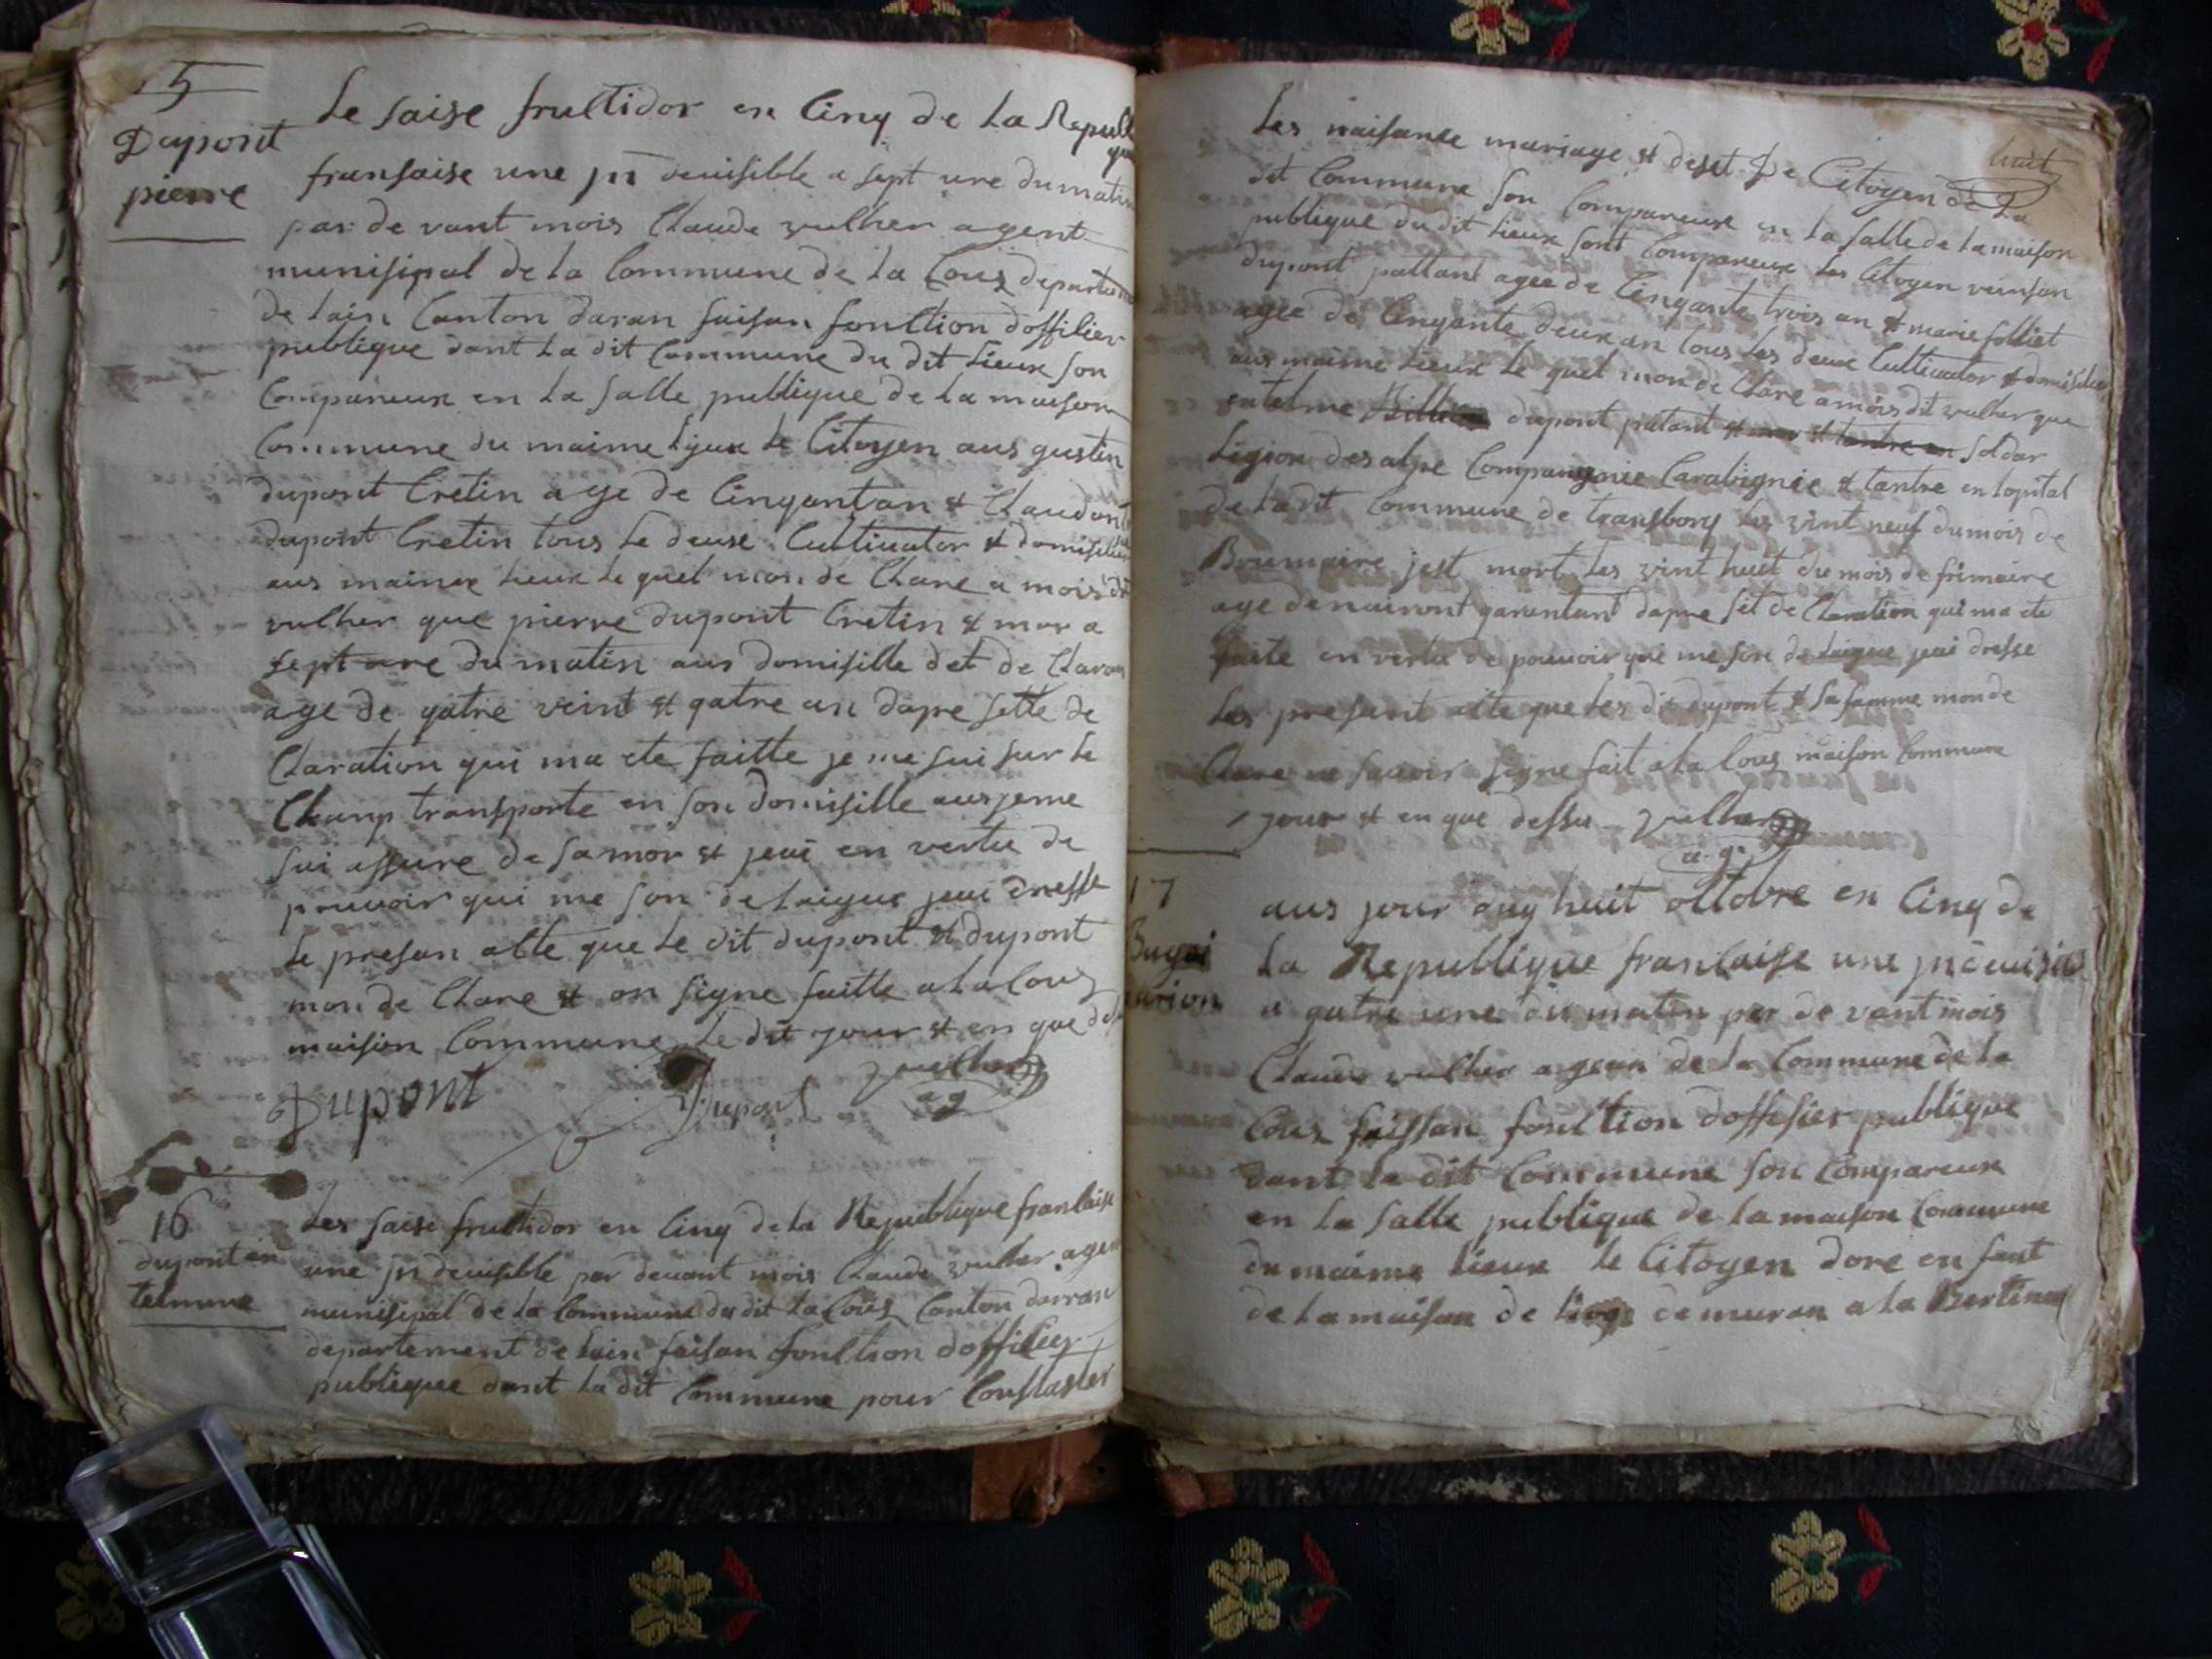 15
Dupont
pierre
Le saise fruttidor en Cinq de La Republ
que
fransaise une jn deuisible a sept ure du matin
par de vant mois Claude vulher agent
munisipal de la Commune de La Cous departem
de lain Canton daran faisan fonction doffisier
publique dant La dit Commune du dit Lieux son
Compareux en La salle publique de La maison
Commune du maime Lieux Le Citoyen aus gustin
dupont Cretin age de Cinqantan et Claud
dupont Cretin tous Le deuse Cultivator et domisilie
aus maimee Lieux Le quel mon de Clare a mois dit
vulher que pierre dupont Cretin et mor a
sept ure du matin aus domisille det de Claran
age de qatre veint et qatre an dapre sette de
Claration qui ma ete faitte je me sui sur Le
Champ transporte en son domisille aus jeme
sui assure de sa mor et jeai en vertu de
pouvoir qui me son delaigue jeai dresse
Le presan acte que Le dit dupont et dupont
mon de Clare et on signe faitte a La Cous
maision Commune Le dit jour et en que
Dupont Dupont vulher
ag
16
dupont an
telmme
Les saise fruttidor en Cinq de La Republique franCaise
une jn deuisible par devant mois Claude vulher agen
munisipal de La Commune du dit La Cous Canton darran
departement de lain faisan fonction doffisier
publique dant La dit Commune pour Constaster
huit
Les naisance mariage et deset De Citoyen de La
dit Commune son Compareux en La salle de La maison
publique du dit Lieux sont Compareux Les Citoyen
dupont pattant agee de Cinqante trois an et marie folliet
agee de Cinqante deux an tous Les deux Cultivator et domisilie
aus maime Lieux Le quel mon de Clare a mois dit vulher que
entelme dupont patant soldar
Ligion des alpe Compangnie Carabignie et tantre en Lopital
de La dit Commune de transborg Les vint neuf du mois de
Brumaire jest mort Les vint huit du mois de frimaire
age danuiront garantant dapre set de Claration qui ma ete
faite en vertu de pouvoir que me son delaigue jeai dresse
Les presant atte que Les dit dupont et sa famme mon de
Clare ne savoir signe fait a La Cous maison Commune
jour et en que dessu vulher
ag
17
Bugei
arion
aus jour duy huit octobre en Cinq de
La Republique franCaise une jndeuisi
a qatre ure du matin par de vant mois
Claude vulher agean de La Commune de La
Cous faissan fonction doffisier publique
dant La dit Commune son Compareux
en La salle publique de La maison Commune
du maime Lieux Le Citoyen dore en fant
de La maison de demuran a La Bertin